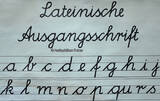 Lateinische
Ausgangsschrift
a b c d e f g h i j
k l m n o p q u r s